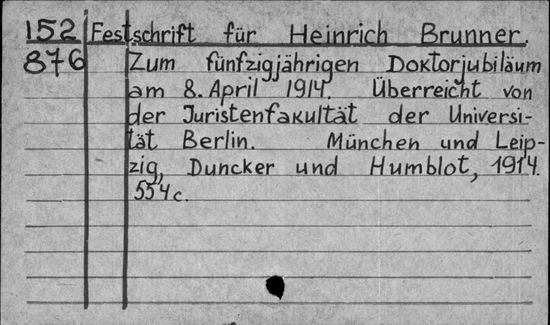 152 Festschrift für Heinrich Brunner.
876 Zum fünfzigjährigen Doktorjubiläum
am 8. April 1914. Überreicht von
der Juristenfakultät der Universi-
tät Berlin. München und Leip-
zig, Duncker und Humblot, 1914.
554 c.